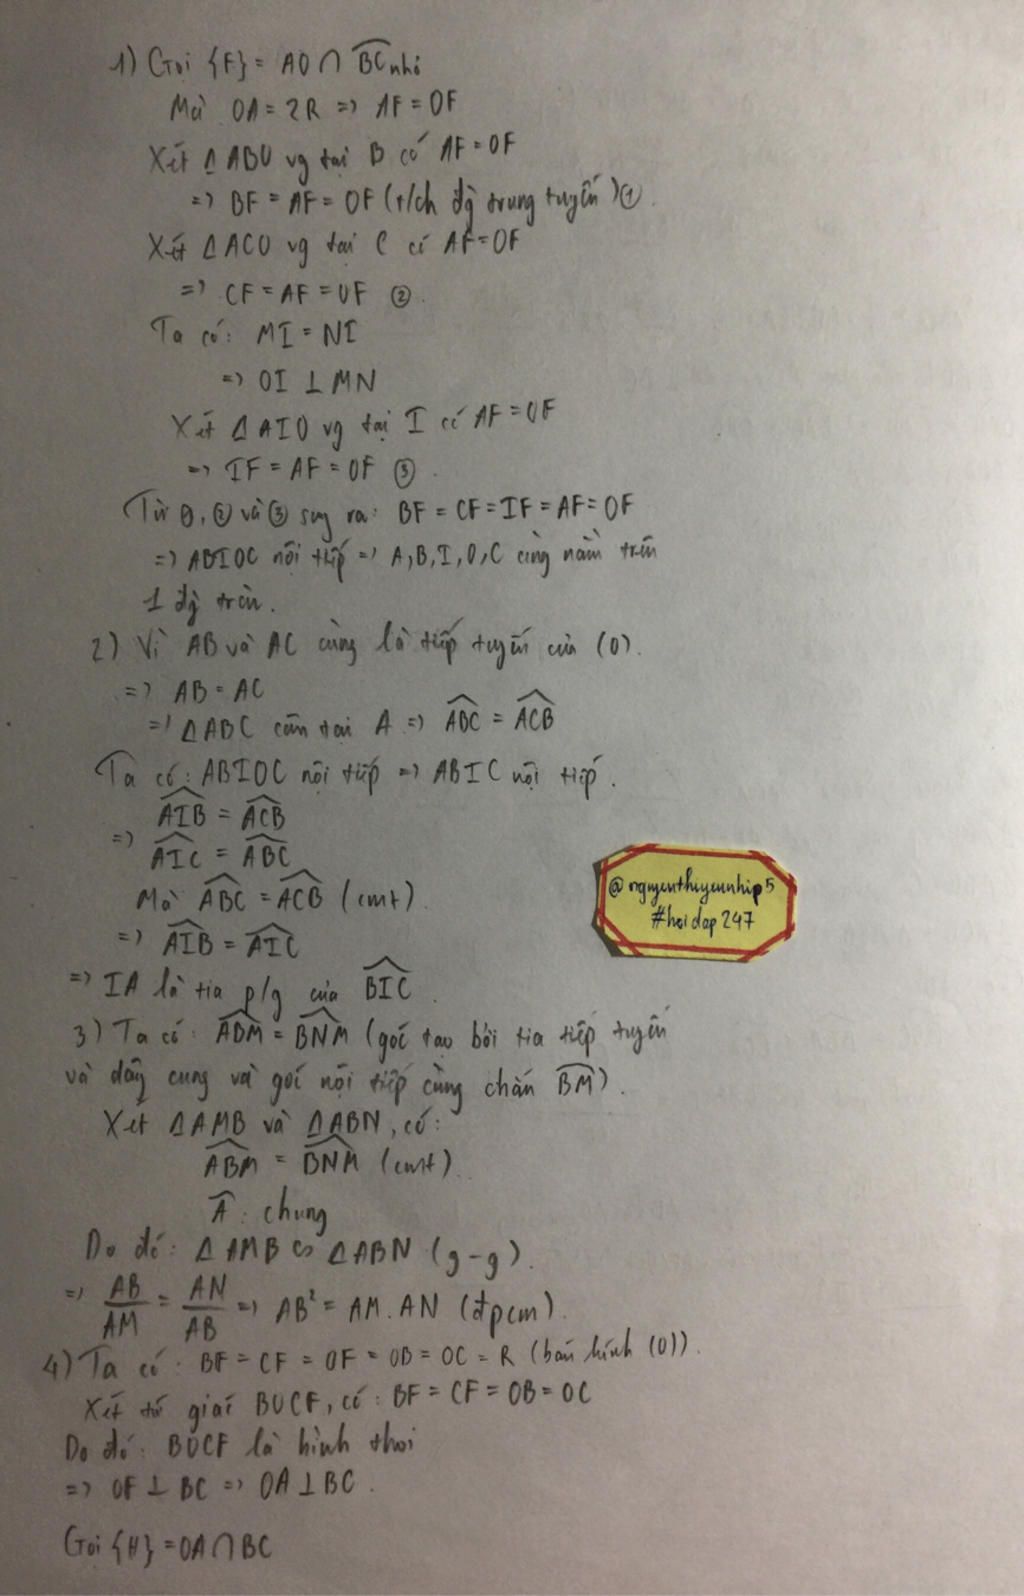 1) Gọi {F} = AO ∩ B͡C nhỏ
Mà OA = 2R => AF = OF
Xét Δ ABO vg tại B có AF = OF
=> BF = AF = OF (t/ch đg trung tuyến) ①.
Xét Δ ACO vg tại C có AF = OF
=> CF = AF = OF ②.
Ta có: MI = NI
=> OI ⊥ MN
Xét Δ AIO vg tại I có AF = OF
=> IF = AF = OF ③.
Từ ①, ② và ③ suy ra: BF = CF = IF = AF = OF
=> ABIOC nội tiếp => A, B, I, O, C cùng nằm trên
1 đg tròn.
2) Vì AB và AC cùng là tiếp tuyến của (O).
=> AB = AC
=> Δ ABC cân tại A => \widehat{ABC} = \widehat{ACB}
Ta có: ABIOC nội tiếp => ABIC nội tiếp.
\widehat{AIB} = \widehat{ACB}
=> \widehat{AIC} = \widehat{ABC}
Mà \widehat{ABC} = \widehat{ACB} (cmt).
=> \widehat{AIB} = \widehat{AIC}
=> IA là tia p/g của \widehat{BIC}.
@nguyenthiyennhip5
#hoidap247
3) Ta có: \widehat{ABM} = \widehat{BNM} (góc tạo bởi tia tiếp tuyến
và dây cung và góc nội tiếp cùng chắn B͡M).
Xét Δ AMB và Δ ABN, có:
\widehat{ABM} = \widehat{BNM} (cmt).
\widehat{A}: chung
Do đó: Δ AMB ∽ Δ ABN (g-g).
=> \frac{AB}{AM} = \frac{AN}{AB} => AB² = AM.AN (đpcm).
4) Ta có: BF = CF = OF = OB = OC = R (bán kính (O)).
Xét tứ giác BOCF, có: BF = CF = OB = OC
Do đó: BOCF là hình thoi
=> OF ⊥ BC => OA ⊥ BC.
Gọi {H} = OA ∩ BC